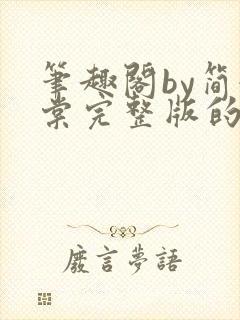 筆趣閣by简
棠完整版的
廢言夢語